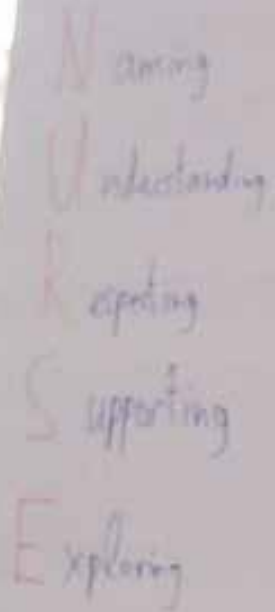 Naming
Understanding
Respecting
Supporting
Exploring